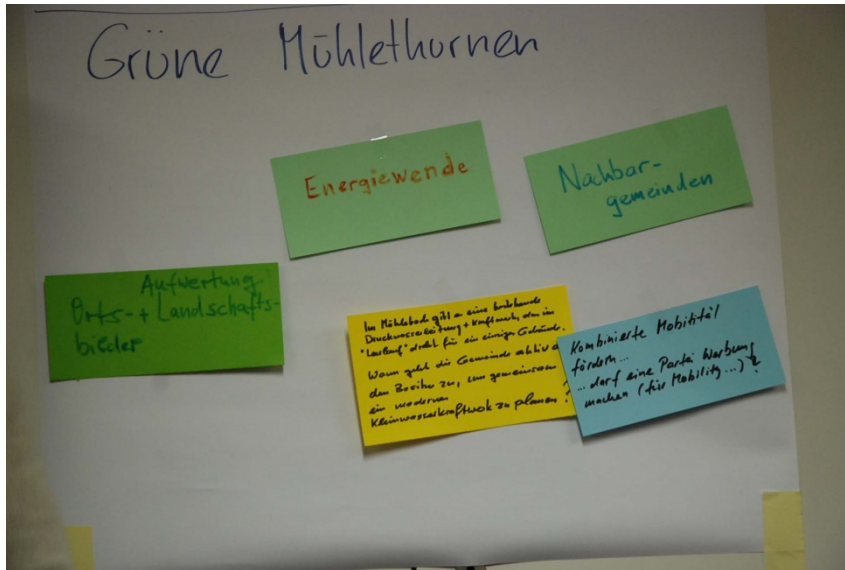 Grüne Mühlethurnen
Energiewende
Nachbar-
gemeinden
Aufwertung
Orts- + Landschafts-
bilder
Im Mühlebach gibt es eine bestehende
Druckwasserleitung + Kraftwerk, das im
"Leerlauf" dreht für ein einziges Gebäude.
Wann geht die Gemeinde aktiv a
den Besitzer zu, um gemeinsam
ein modernes
Kleinwasserkraftwerk zu planen?
Kombinierte Mobilität
fördern...
...darf eine Partei Werbung
machen (für Mobility...)?